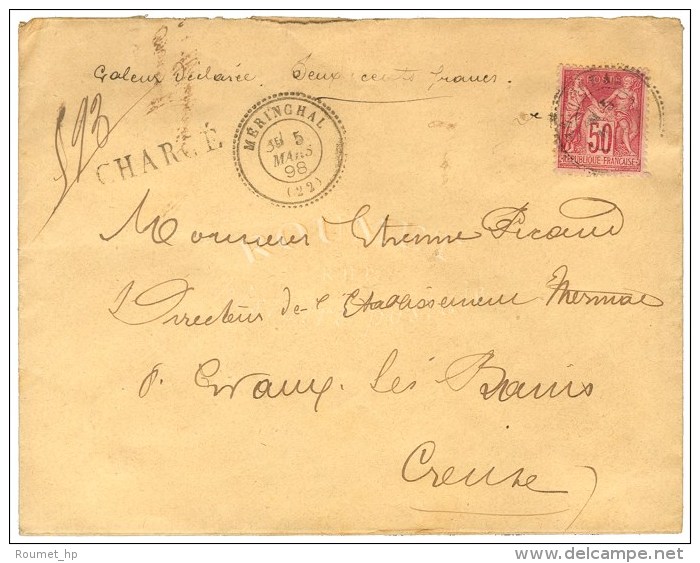 Valeur déclarée. Deux cents francs.
593
CHARGÉ
MÉRINGHAL
5
MARS
98
(22)
50
REPUBLIQUE FRANÇAISE
Monsieur Etienne Picaud
Directeur de l'Etablissement Thermal
à Evaux-les-Bains
Creuse
Roumet_hp
www.delcampe.net